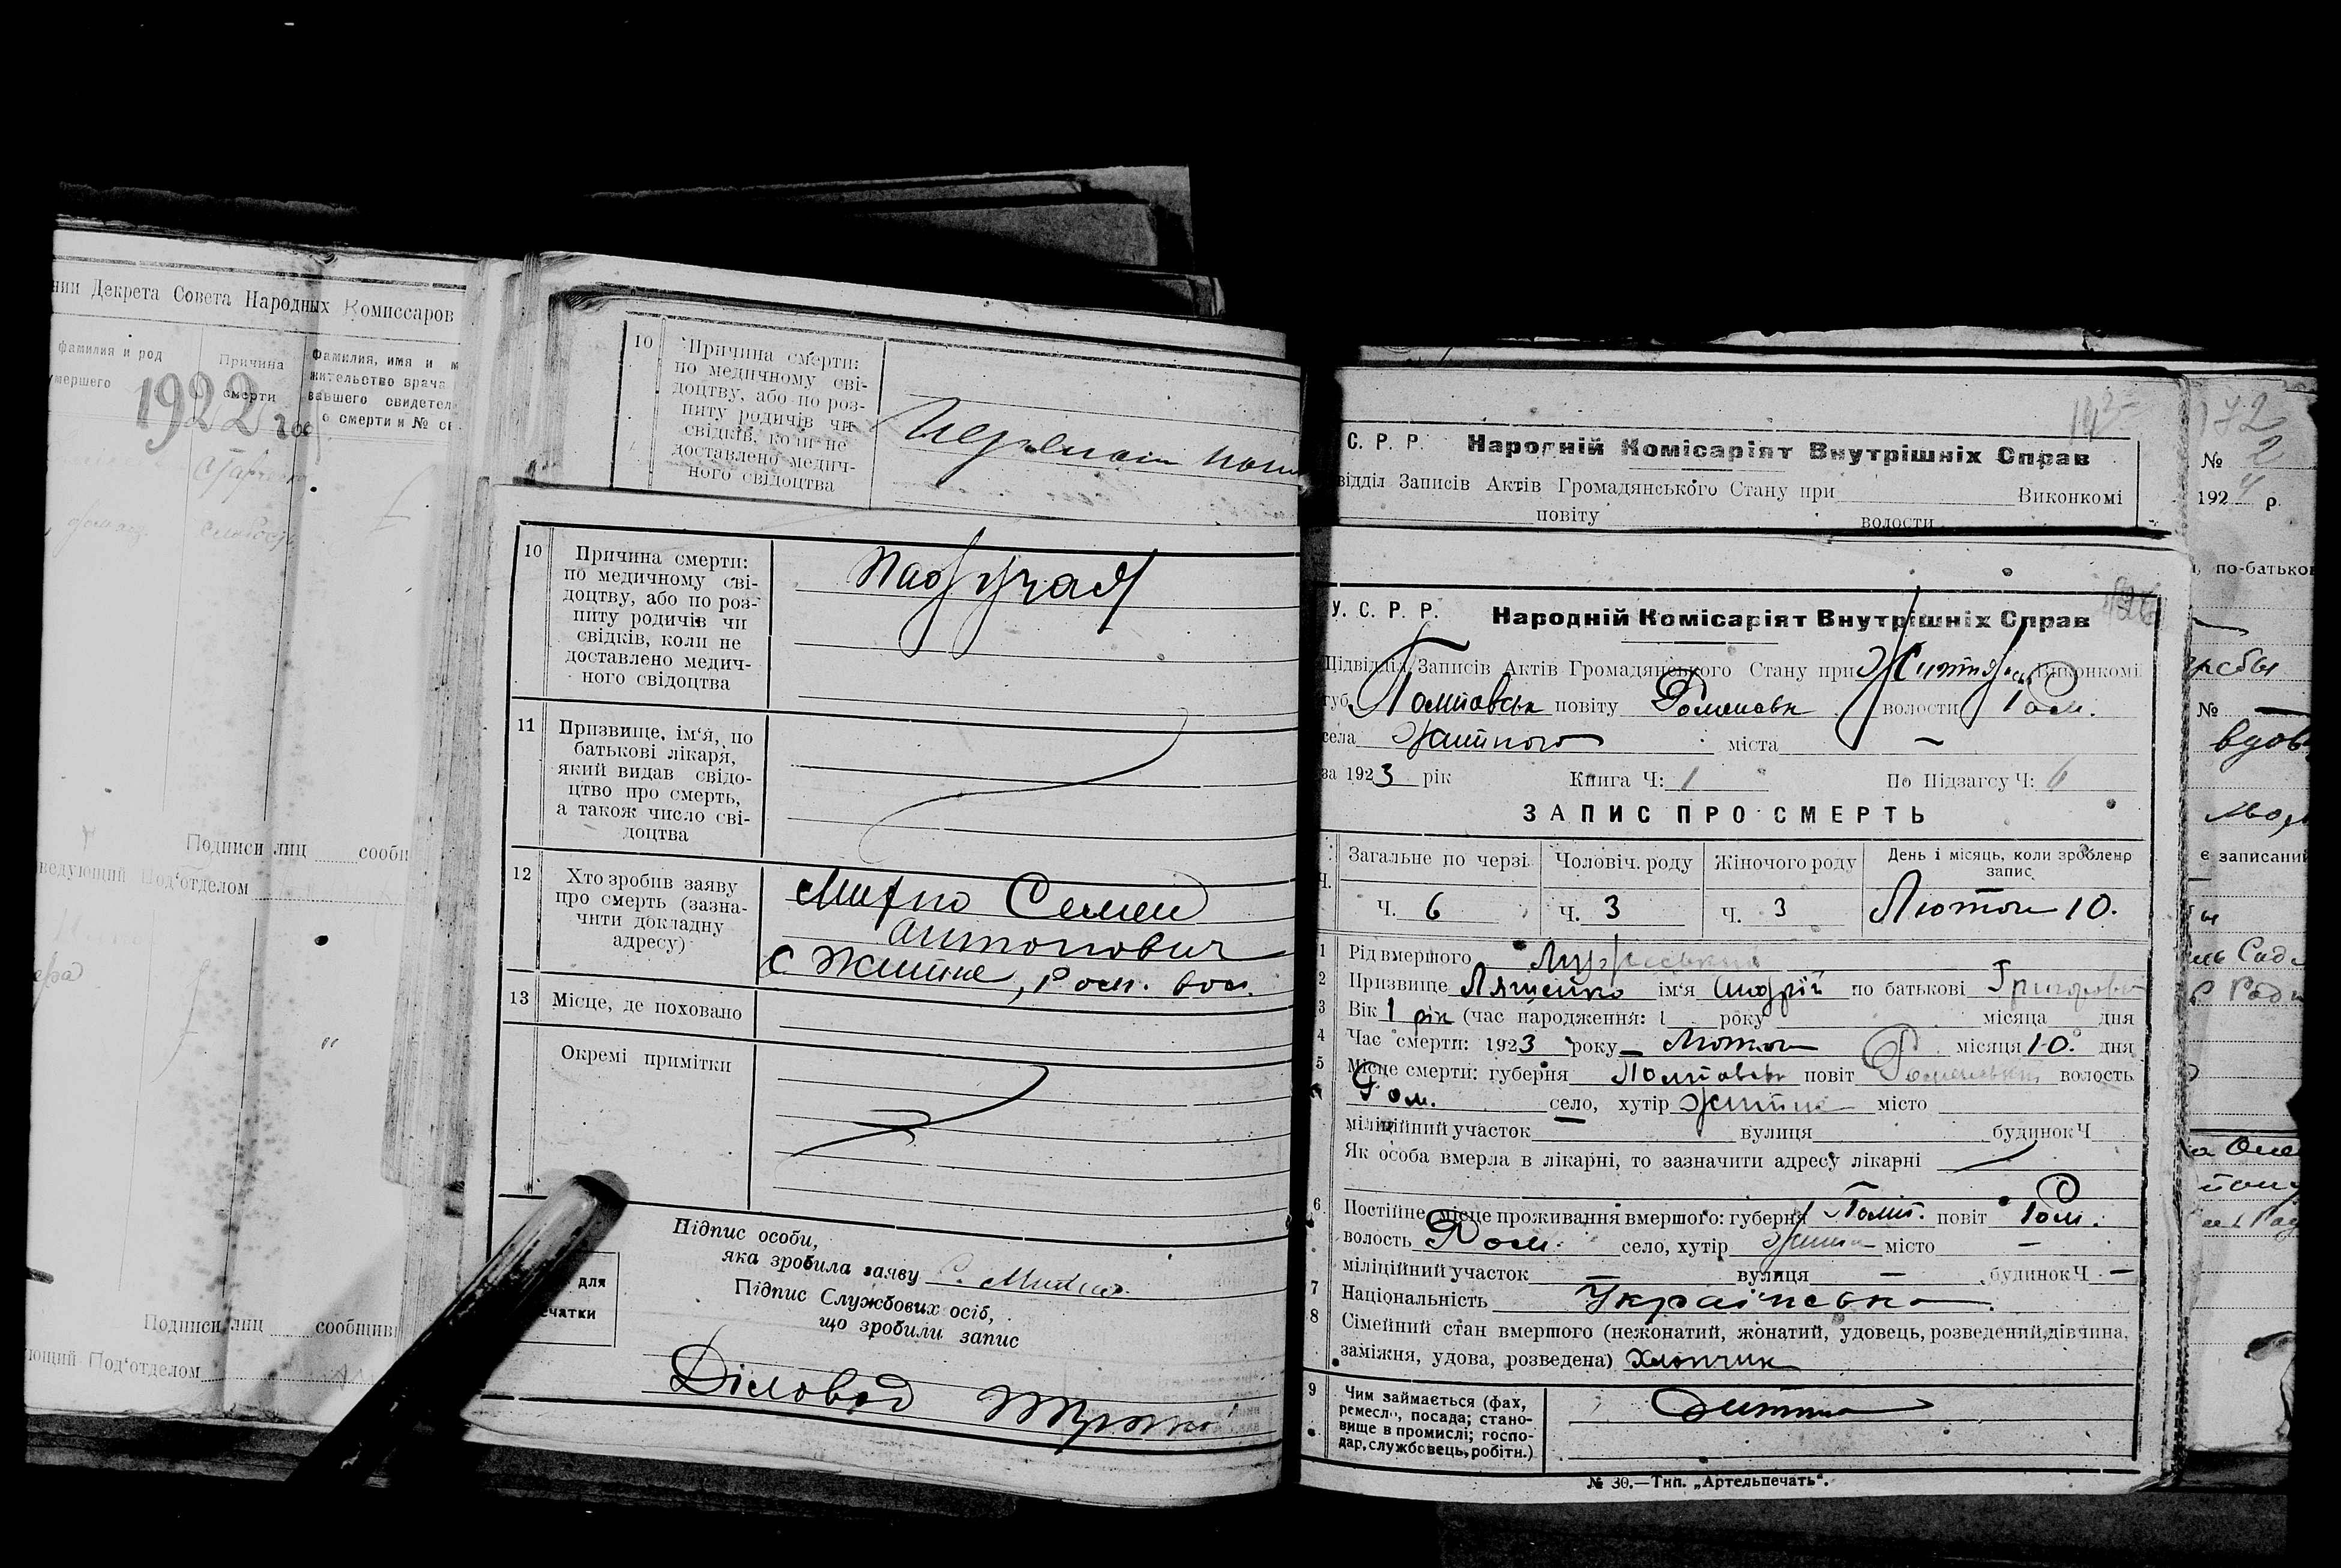 нии Декрета Совета Народных Комиссаров
фамилия и род
умершего
Причина
смерти
Фамилия, имя и м
жительство врача
вавшего свидетел
о смерти и № св
1922 год
Подписи лиц сооби
ведующий Под'отделом
Подписи лиц сообщивш
ующий Под'отделом
10 Причина смерти:
по медичному сві-
доцтву, або по роз-
питу родичів чи
свідків, коли не
доставлено медич-
ного свідоцтва
10 Причина смерти:
по медичному сві-
доцтву, або по роз-
питу родичів чи
свідків, коли не
доставлено медич-
ного свідоцтва
11 Призвище, ім'я, по
батькові лікаря,
який видав свідо-
цтво про смерть,
а також число сві-
доцтва
12 Хто зробив заяву
про смерть (зазна-
чити докладну
адресу)
Семен
Антонович
с Житне, Ром. вол.
13 Місце, де поховано
Окремі примітки
Підпис особи,
яка зробила заяву С.
Підпис Службових осіб,
що зробили запис
для
ечатки
Діловод
С. Р. Р. Народній Комісаріят Внутрішніх Справ
відділ Записів Актів Громадянського Стану при Виконкомі
повіту волости
У. С. Р. Р. Народній Комісаріят Внутрішніх Справ
Підвідділ Записів Актів Громадянського Стану при Виконкомі
губ. Полтавськ повіту Роменськ волости Ром.
села Житного міста —
за 1923 рік Книга Ч: 1 По Підзагсу Ч: 6
ЗАПИС ПРО СМЕРТЬ
Загальне по черзі Чоловіч. роду Жіночого роду День і місяць, коли зроблено
запис
Ч. 6 Ч. 3 Ч. 3 Лютого 10.
1 Рід вмершого
2 Призвище Ляшенко ім'я Андрій по батькові Григорович
3 Вік 1 рік (час народження: 1 року місяца дня
4 Час смерти: 1923 року — Лютого місяця 10. дня
5 Місце смерти: губерня Полтавськ повіт Роменськ волость
Ром. село, хутір Житне місто
міліційний участок вулиця будинок Ч
Як особа вмерла в лікарні, то зазначити адресу лікарні
6 Постійне місце проживання вмершого: губерня Полт. повіт Ром.
волость Ром. село, хутір Житне місто —
міліційний участок — вулиця — будинок Ч —
7 Національність Українська
8 Сімейний стан вмершого (нежонатий, жонатий, удовець, розведений, дівчина,
заміжня, удова, розведена) Хлопчик
9 Чим займається (фах,
ремесло, посада; стано-
вище в промислі; госпо-
дар, службовець, робітн.)
Дитина
№ 30.—Тип. „Артельпечать".
172
№ 2
1924 р
, по-батьков
№ —
вдов
є записаний